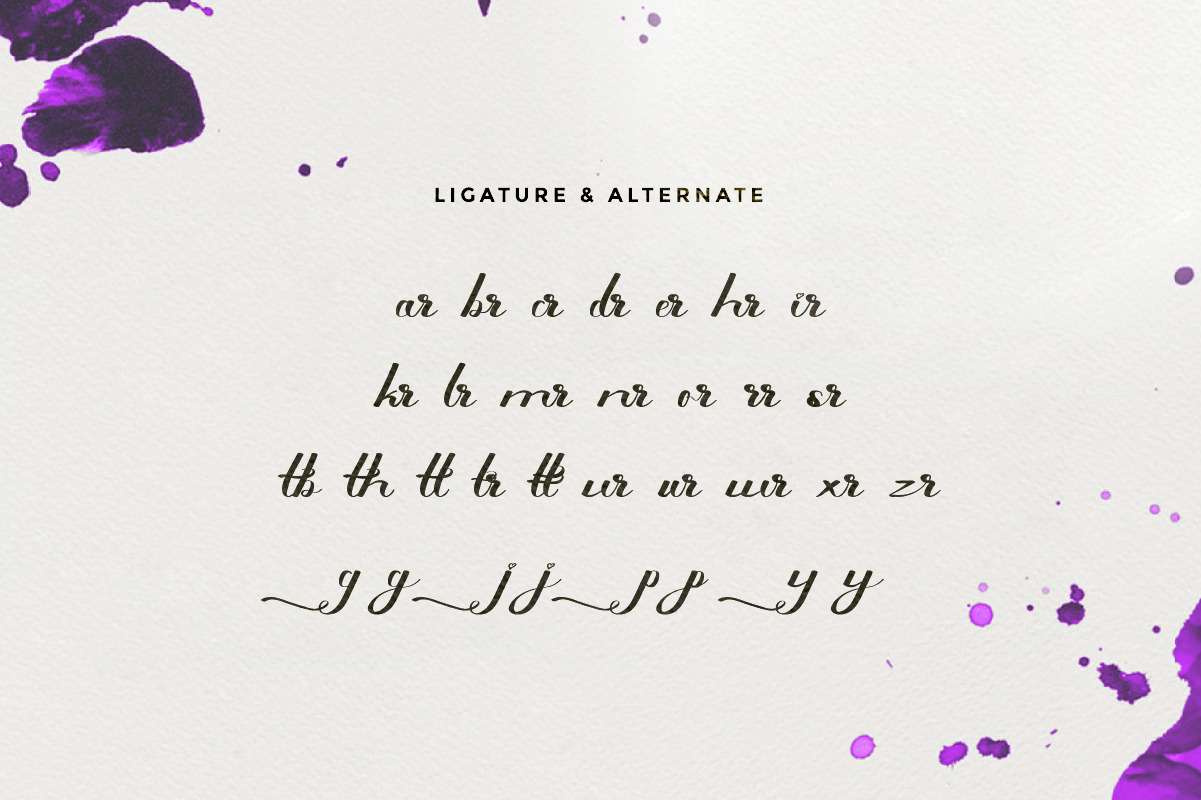 LIGATURE & ALTERNATE
ar br cr dr er hr ir
kr lr mr nr or rr sr
tb th tl tr tt ur wr uur xr zr
g g j j p p y y